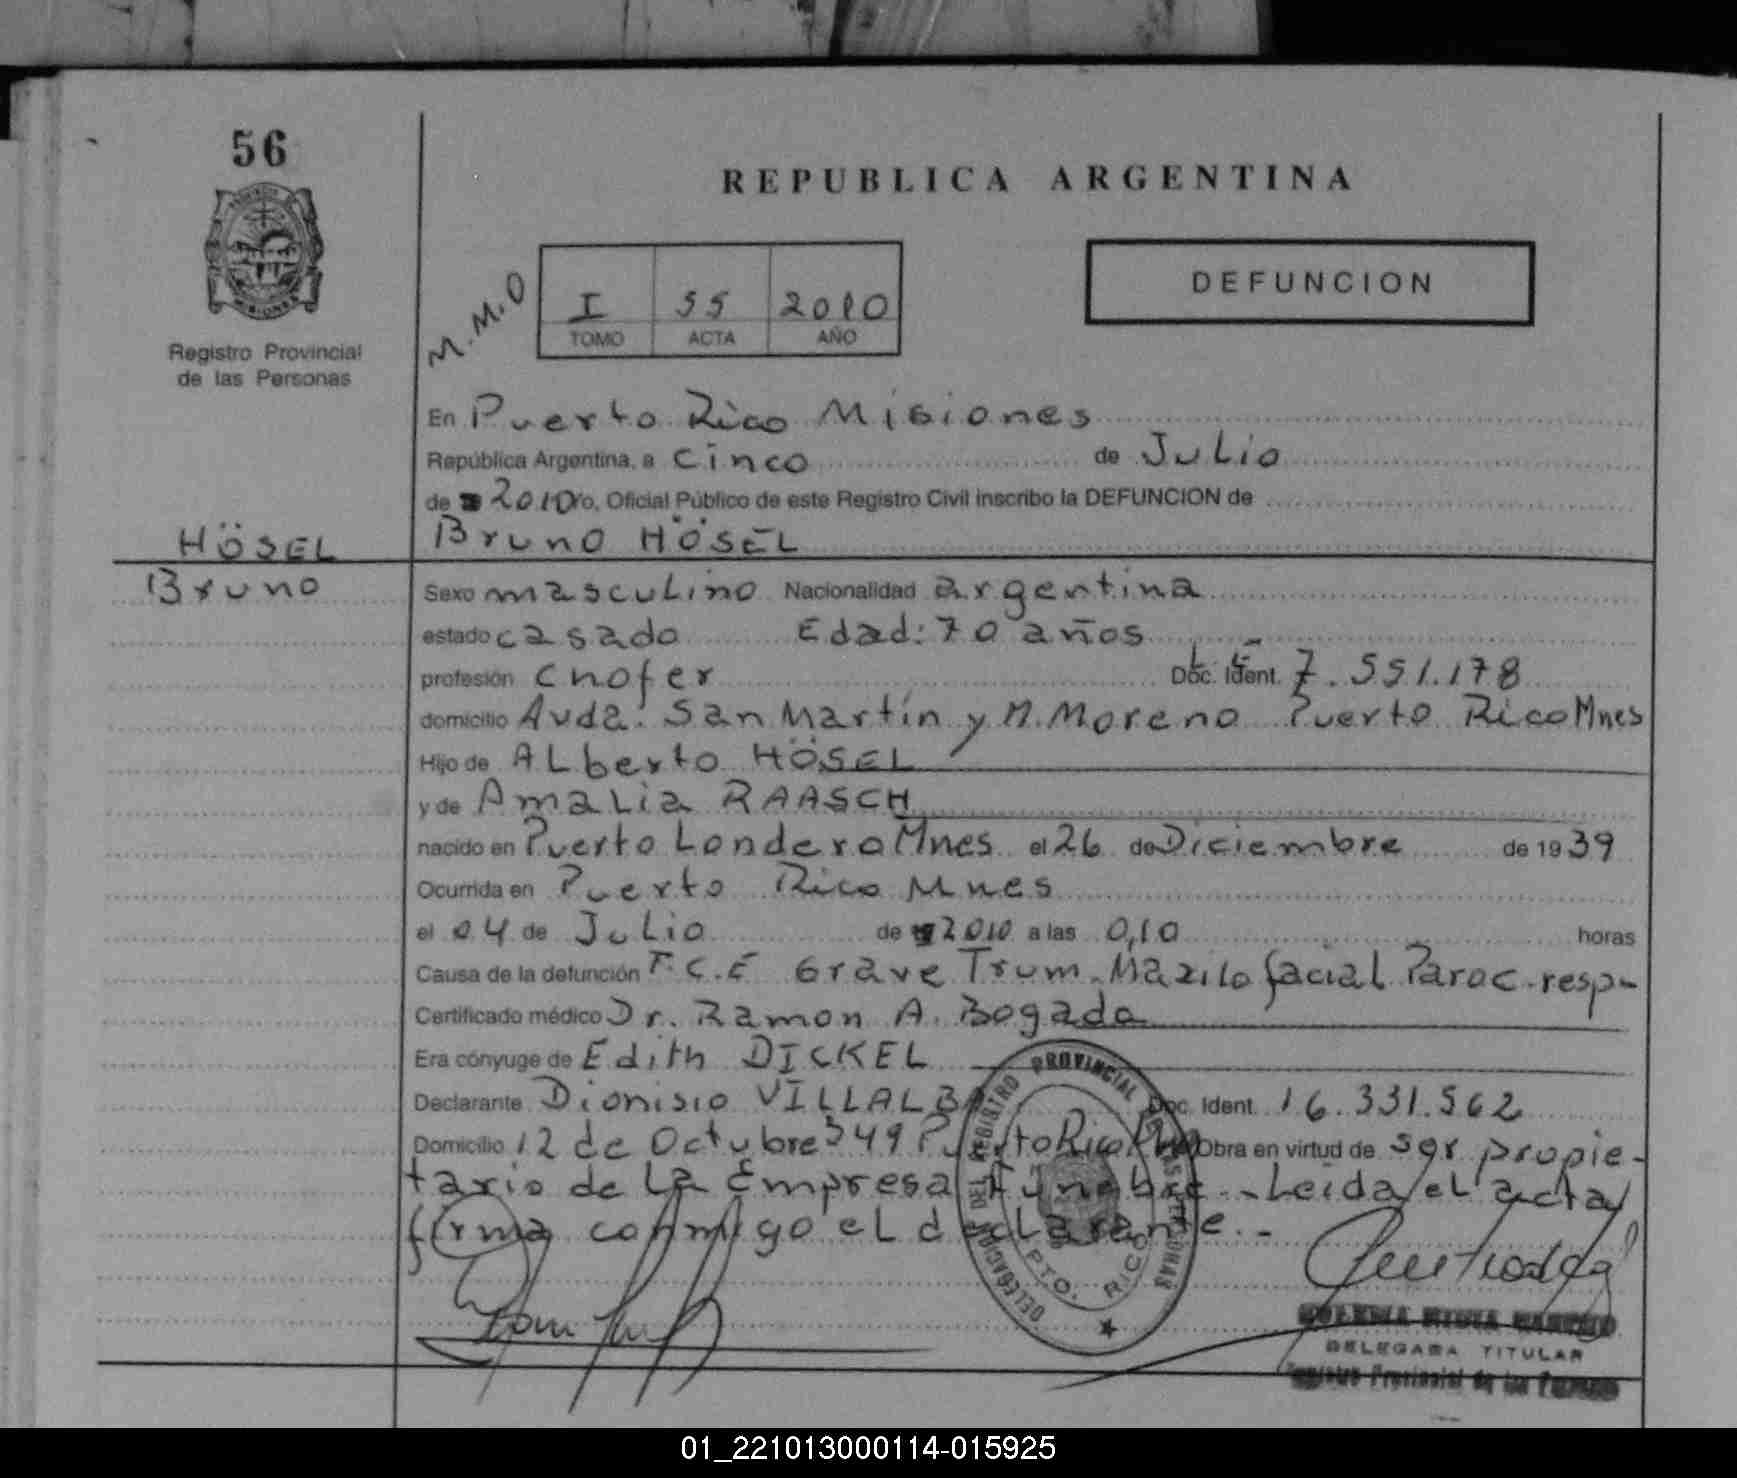 56
REPUBLICA ARGENTINA
M.M.O
I 55 2010
TOMO ACTA AÑO
DEFUNCION
Registro Provincial
de las Personas
En Puerto Rico Misiones
República Argentina, a cinco de Julio
de 2010 Yo, Oficial Público de este Registro Civil inscribo la DEFUNCION de
HÖSEL
Bruno
Bruno HÖSEL
Sexo masculino Nacionalidad argentina
estado casado Edad: 70 años
profesión chofer Doc. Ident. L.E 7.551.178
domicilio Avda. San Martín y M. Moreno Puerto Rico Mnes
Hijo de ALberto HÖSEL
y de AmaLia RAASCH
nacido en Puerto Londero Mnes el 26 de Diciembre de 1939
Ocurrida en Puerto Rico Mnes
el 04 de Julio de 2010 a las 0,10 horas
Causa de la defunción T.C.E Grave Trum. Maxilo facial Paroc-resp-
Certificado médico Dr. Ramon A. Bogado
Era cónyuge de Edith DICKEL
Declarante Dionisio VILLALBA Doc. Ident. 16.331.562
Domicilio 12 de Octubre 549 Puerto Rico Obra en virtud de ser propie-
tario de La Empresa Fúnebre.-Leida el acta
firma conmigo el declarante.-
DELEGACION DEL REGISTRO PROVINCIAL DE LAS PERSONAS
PTO. RICO
DELEGADA TITULAR
Registro Provincial de las Personas
01_221013000114-015925